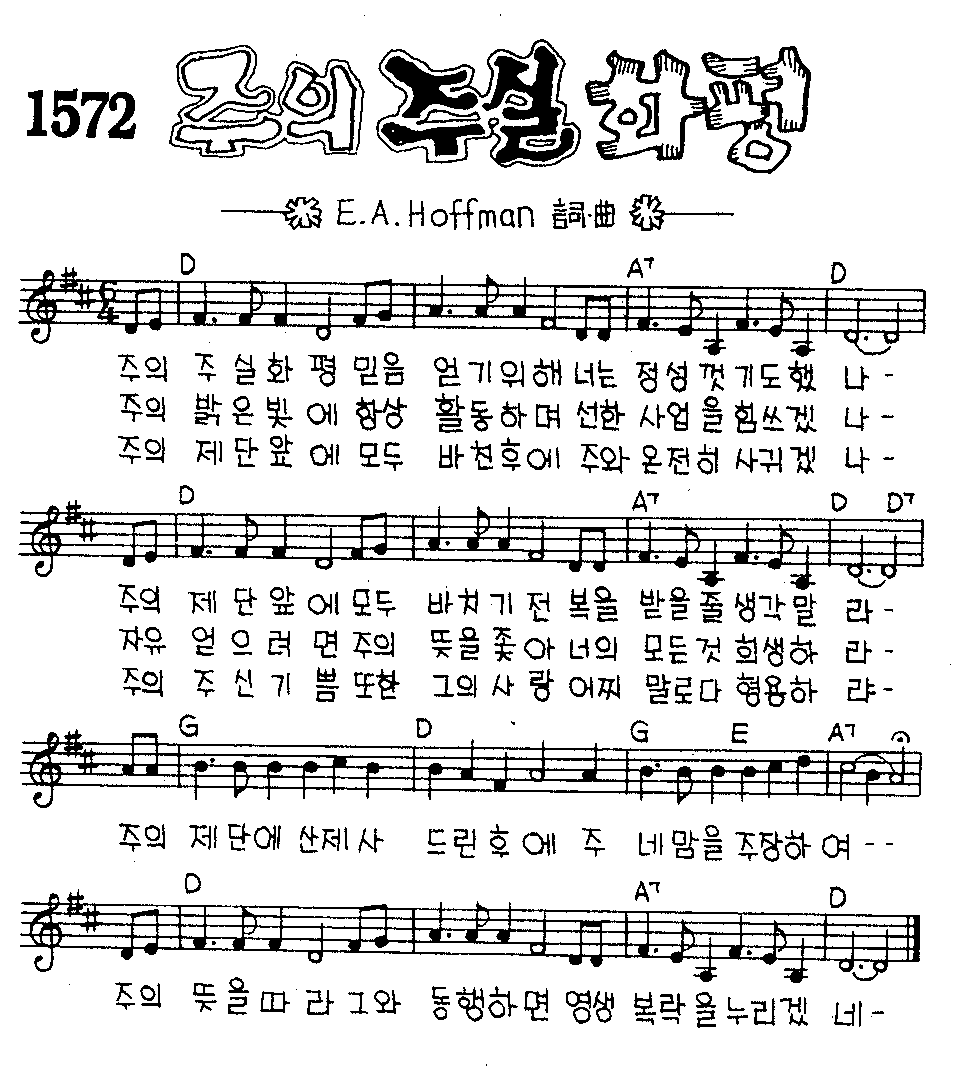 1572 주의 주실 화평
E.A.Hoffman 詞·曲
D A7 D
주의 주 실 화 평 믿음 얻기위해 너는 정성껏기도했 나-
주의 밝은빛에 항상 활동하며 선한 사업을힘쓰겠 나-
주의 제단앞에 모두 바친후에 주와 온전히 사귀겠 나-
D A7 D D7
주의 제 단 앞 에모두 바치기전 복을 받을줄생각말 라-
자유 얻으려면주의 뜻을좇아 너의 모든것 희생하 라-
주의 주 신 기 쁨 또한 그의사 랑 어찌 말로다 형용하 랴-
G D G E A7
주의 제단에 산제사 드린후에 주 네맘을 주장하 여--
D A7 D
주의 뜻을따 라그와 동행하면 영생 복락을누리겠 네-